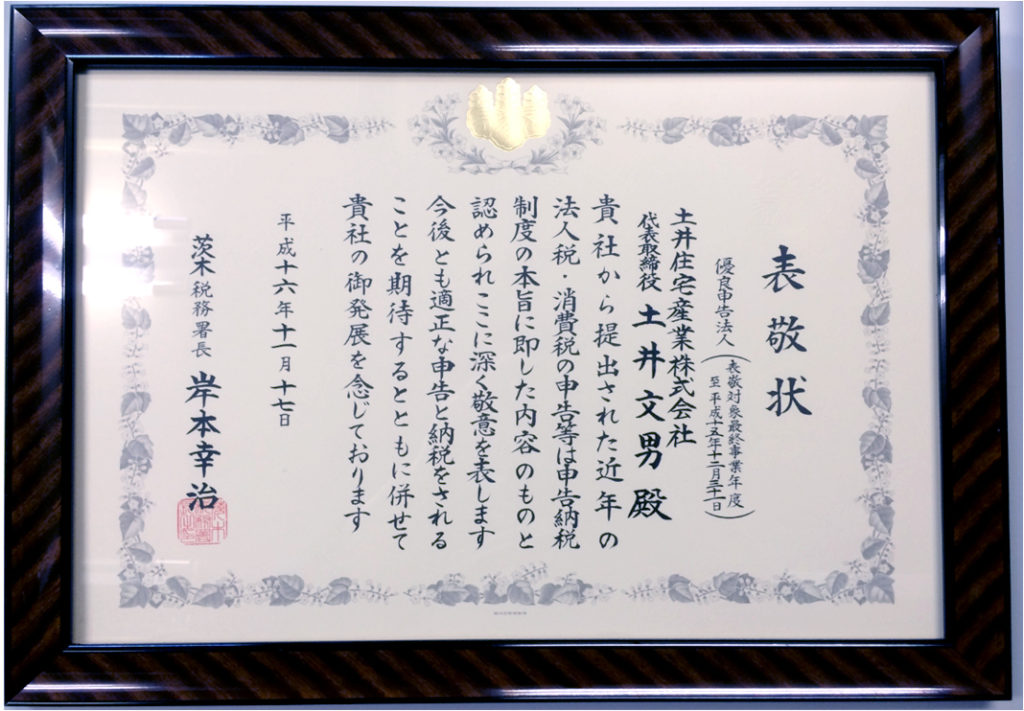 表敬状
優良申告法人
(表敬対象最終事業年度
至平成十五年十二月三十一日)
土井住宅産業株式会社
代表取締役 土井文男 殿
貴社から提出された近年の
法人税・消費税の申告等は申告納税
制度の本旨に即した内容のものと
認められここに深く敬意を表します
今後とも適正な申告と納税をされる
ことを期待するとともに併せて
貴社の御発展を念じております
平成十六年十一月十七日
茨木税務署長 岸本幸治